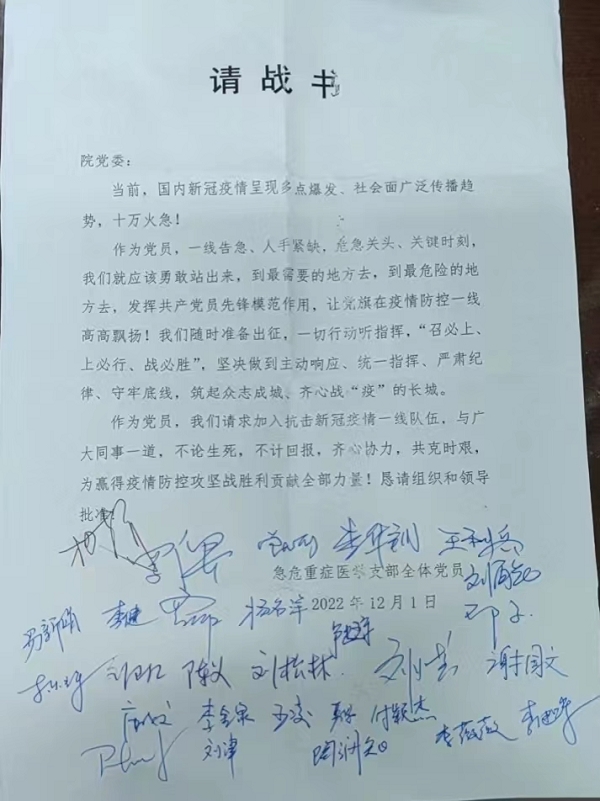 请战书
院党委：
当前，国内新冠疫情呈现多点爆发、社会面广泛传播趋
势，十万火急！
作为党员，一线告急、人手紧缺，危急关头、关键时刻，
我们就应该勇敢站出来，到最需要的地方去，到最危险的地
方去，发挥共产党员先锋模范作用，让党旗在疫情防控一线
高高飘扬！我们随时准备出征，一切行动听指挥，“召必上、
上必行、战必胜”，坚决做到主动响应、统一指挥、严肃纪
律、守牢底线，筑起众志成城、齐心战“疫”的长城。
作为党员，我们请求加入抗击新冠疫情一线队伍，与广
大同事一道，不论生死，不计回报，齐心协力，共克时艰，
为赢得疫情防控攻坚战胜利贡献全部力量！恳请组织和领导
批准
李华钏 王利兵
急危重症医学支部全体党员
李健 杨名洋 2022年12月1日
刘松林 谢国文
李金泉 王凌 付颖杰 李薇薇
刘津